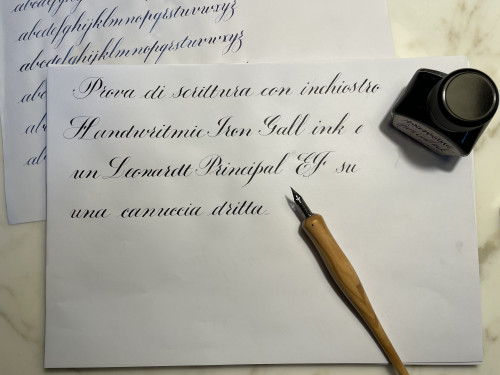 abcdefghijklmnopqrstuvwxyz
abcdefghijklmnopqrstuvwxyz
abc
abc
abc
Prova di scrittura con inchiostro
Handwritmic Iron Gall ink e
un Leonardt Principal EF su
una canuccia dritta